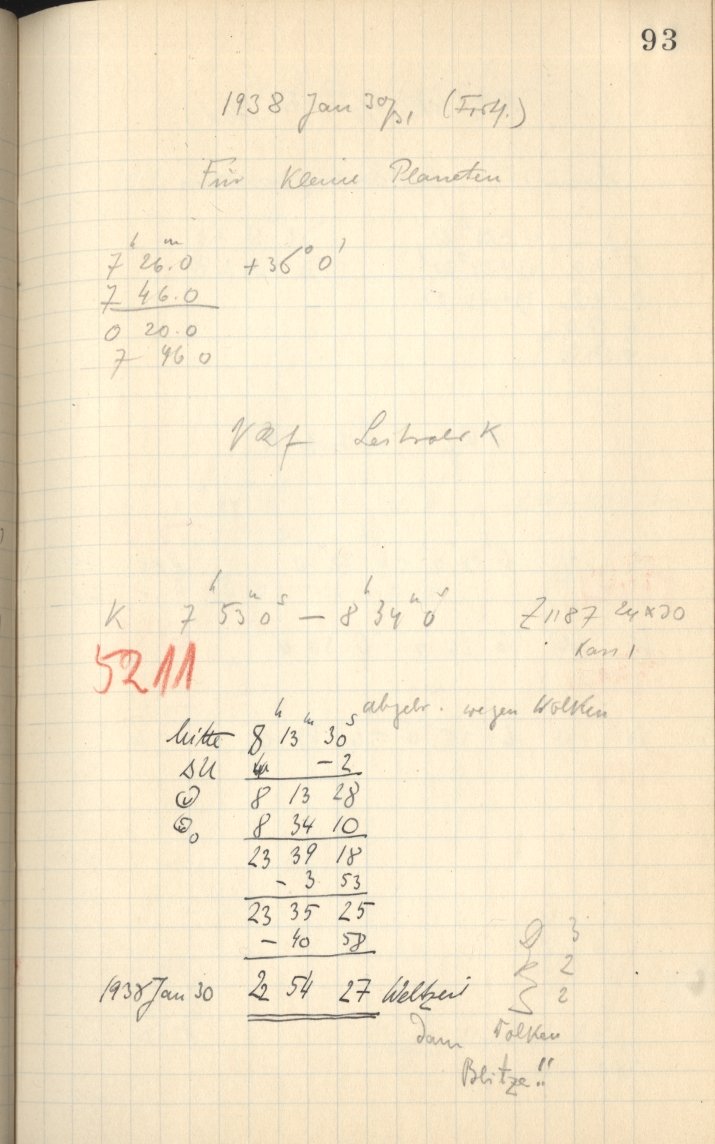 93
1938 Jan 30/31
Für Kleine Planeten
7 h 26.0 m +36° 0'
7 46.0
0 20.0
7 46 0
K 7 h 53 m 0 s — 8 h 34 m 0 s Z 1187 24 x 30
Kass 1
5211
abgebr. wegen Wolken
Mitte 8 h 13 m 30 s
ΔU - 2
8 13 28
8 34 10
23 39 18
- 3 53
23 35 25
- 40 58
1938 Jan 30 22 54 27 Weltzeit
D 3
R 2
S 2
Dann Wolken
Blitze!!